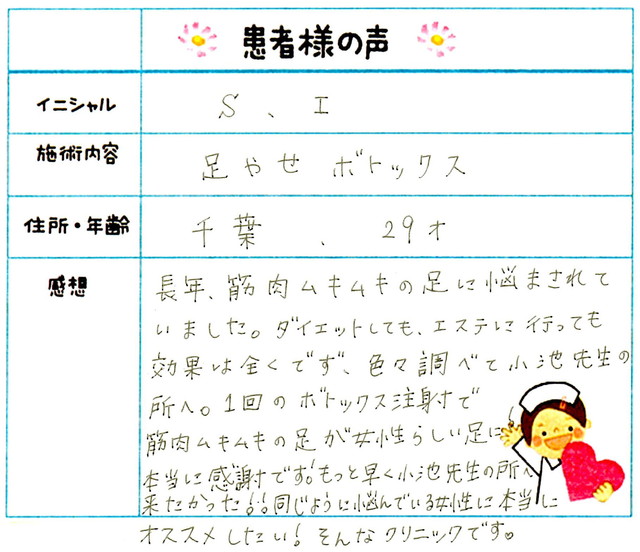 患者様の声
イニシャル S、I
施術内容 足やせ ボトックス
住所・年齢 千葉、29才
感想
長年、筋肉ムキムキの足に悩まされて
いました。ダイエットしても、エステに行っても
効果は全くでず、色々調べて小池先生の
所へ。1回のボトックス注射で
筋肉ムキムキの足が女性らしい足に!
本当に感謝です!もっと早く小池先生の所へ
来たかった!!同じように悩んでいる女性に本当に
オススメしたい!そんなクリニックです。